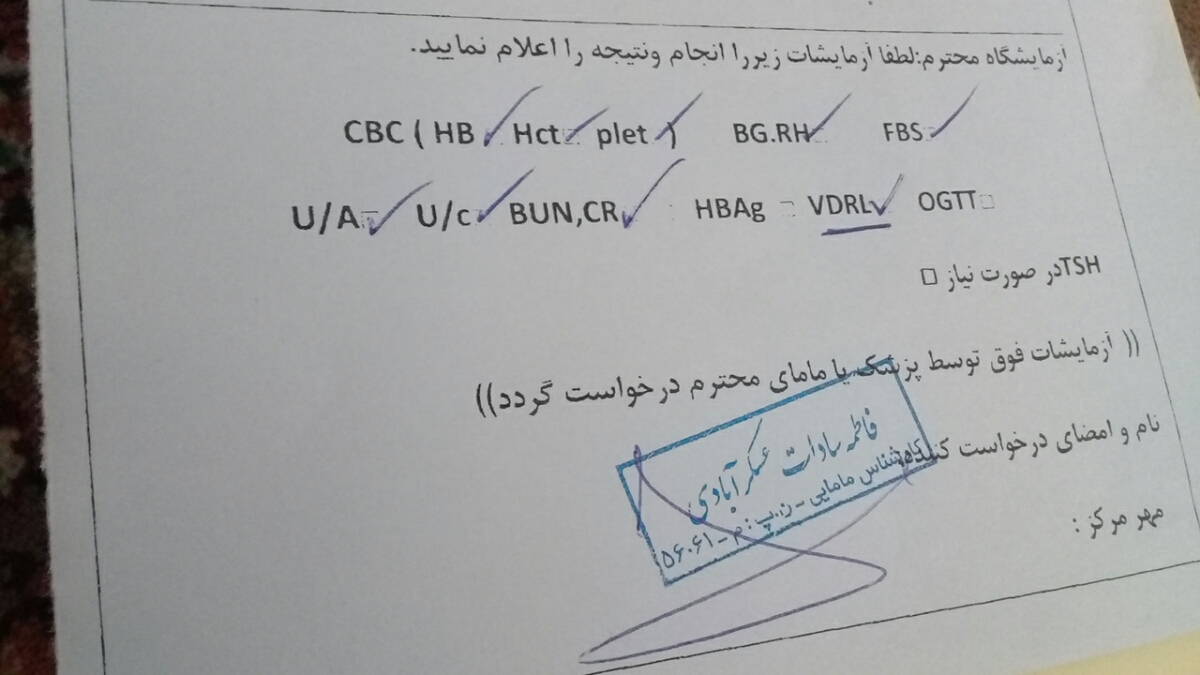 آزمایشگاه محترم:لطفا آزمایشات زیررا انجام ونتیجه را اعلام نمایید.
CBC ( HB ✓ Hct ✓ plet ✓ ) BG.RH ✓ FBS ✓
U/A ✓ U/c ✓ BUN,CR ✓ HBAg □ VDRL ✓ OGTT □
TSHدر صورت نیاز □
(( آزمایشات فوق توسط پزشک یا مامای محترم درخواست گردد))
نام و امضای درخواست کننده:
فاطمه سادات عسکرآبادی
کارشناس مامایی - ن.پ : م - ۵۶۰۶۱
مهر مرکز :